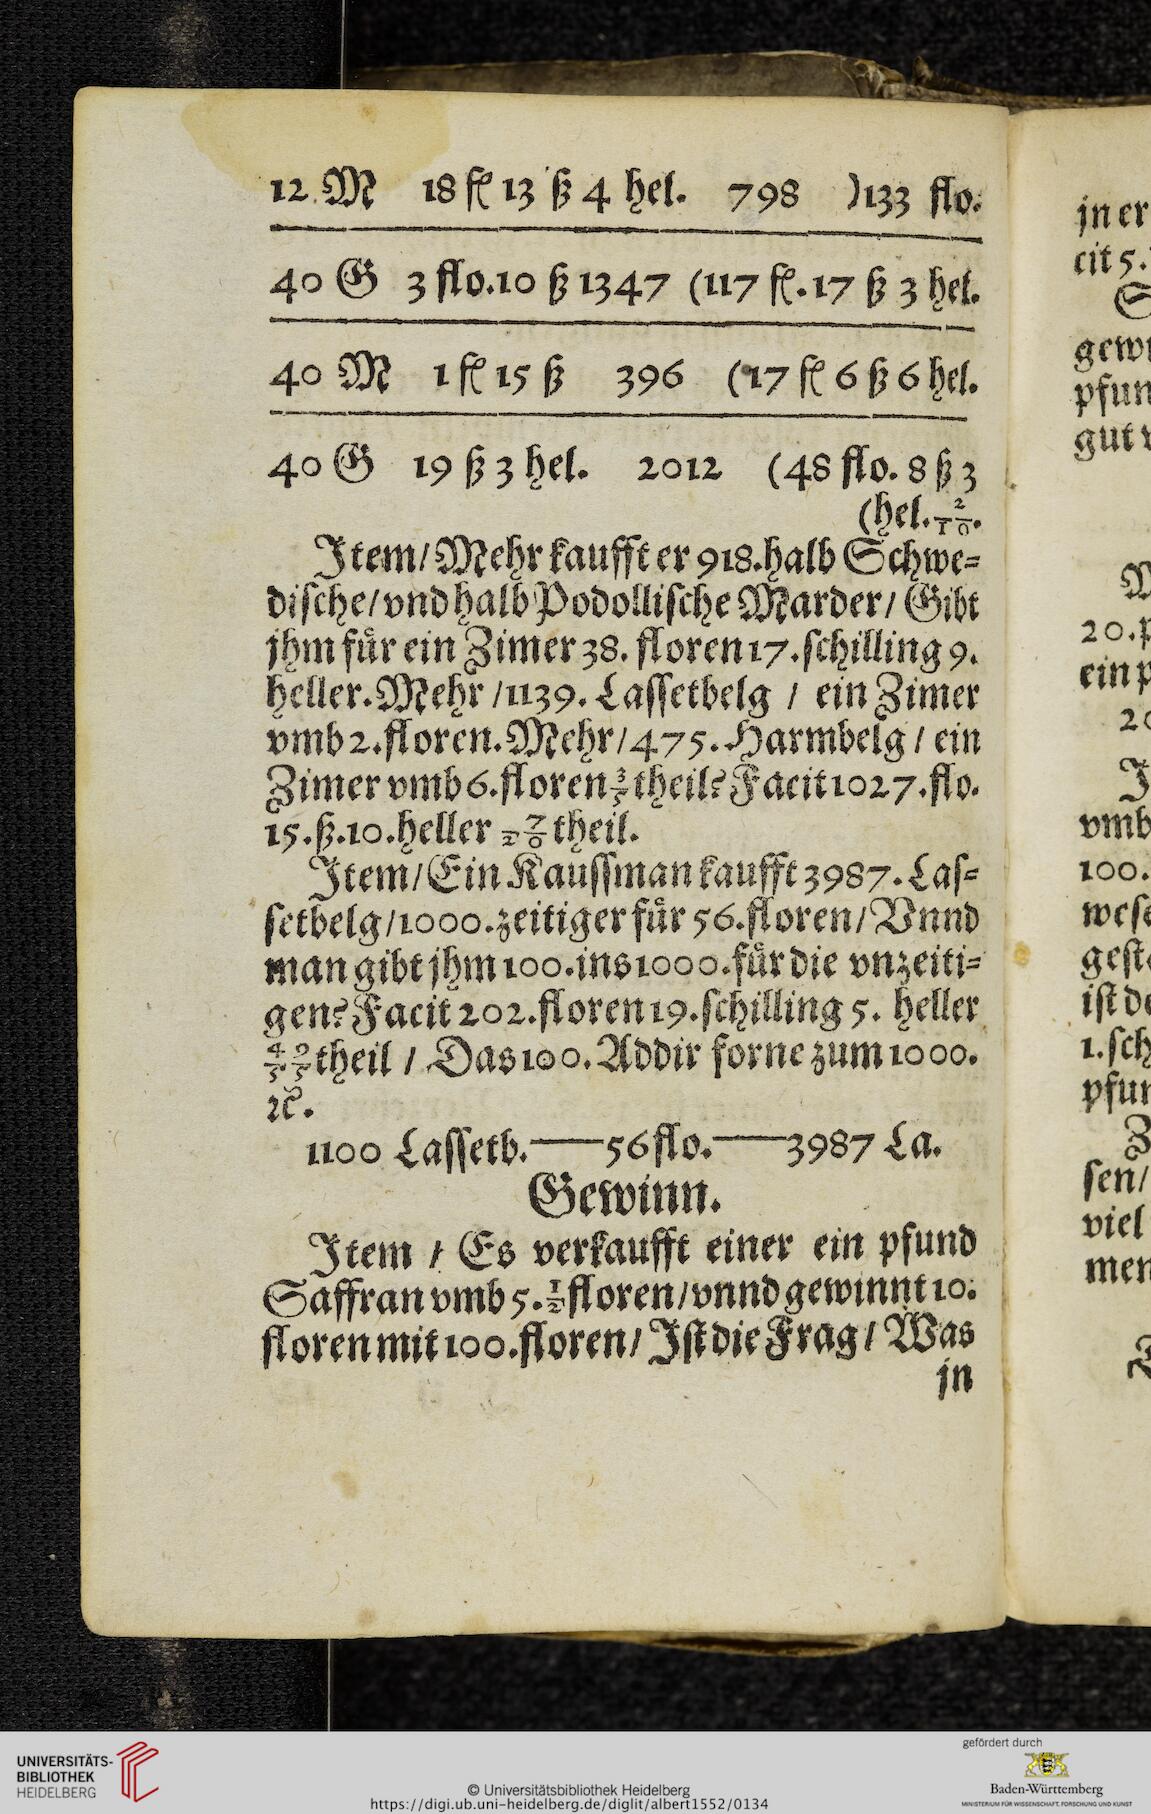 12 M 18 fl 13 ß 4 hel. 798 )133 flo.
40 G 3 flo. 10 ß 1347 (117 fl. 17 ß 3 hel.
40 M 1 fl 15 ß 396 (17 fl 6 ß 6 hel.
40 G 19 ß 3 hel. 2012 (48 flo. 8 ß 3
(hel. 2/10.
Item/ Mehr kaufft er 918. halb Schwe=
dische/ vnd halb Podollische Marder/ Gibt
jhm für ein Zimer 38. floren 17. schilling 9.
heller. Mehr / 1139. Lassetbelg / ein Zimer
vmb 2. floren. Mehr/ 475. Harmbelg / ein
Zimer vmb 6. floren 3/5 theil? Facit 1027. flo.
15. ß. 10. heller 7/20 theil.
Item/ Ein Kaussman kaufft 3987. Las=
setbelg/ 1000. zeitiger für 56. floren/ Vnnd
man gibt jhm 100. ins 1000. für die vnzeiti=
gen? Facit 202. floren 19. schilling 5. heller
49/55 theil / Das 100. Addir forne zum 1000.
ꝛc.
1100 Lassetb. — 56 flo. — 3987 La.
Gewinn.
Item / Es verkaufft einer ein pfund
Saffran vmb 5. 1/2 floren/ vnnd gewinnt 10.
floren mit 100. floren/ Ist die Frag / Was
jn
jn er
cit 5.
gewi
pfun
gut v
20. p
ein p
20
vmb
100.
wese
geste
ist de
1. sch
pfun
sen/
viel
men
UNIVERSITÄTS-
BIBLIOTHEK
HEIDELBERG
© Universitätsbibliothek Heidelberg
https://digi.ub.uni-heidelberg.de/diglit/albert1552/0134
gefördert durch
Baden-Württemberg
MINISTERIUM FÜR WISSENSCHAFT, FORSCHUNG UND KUNST